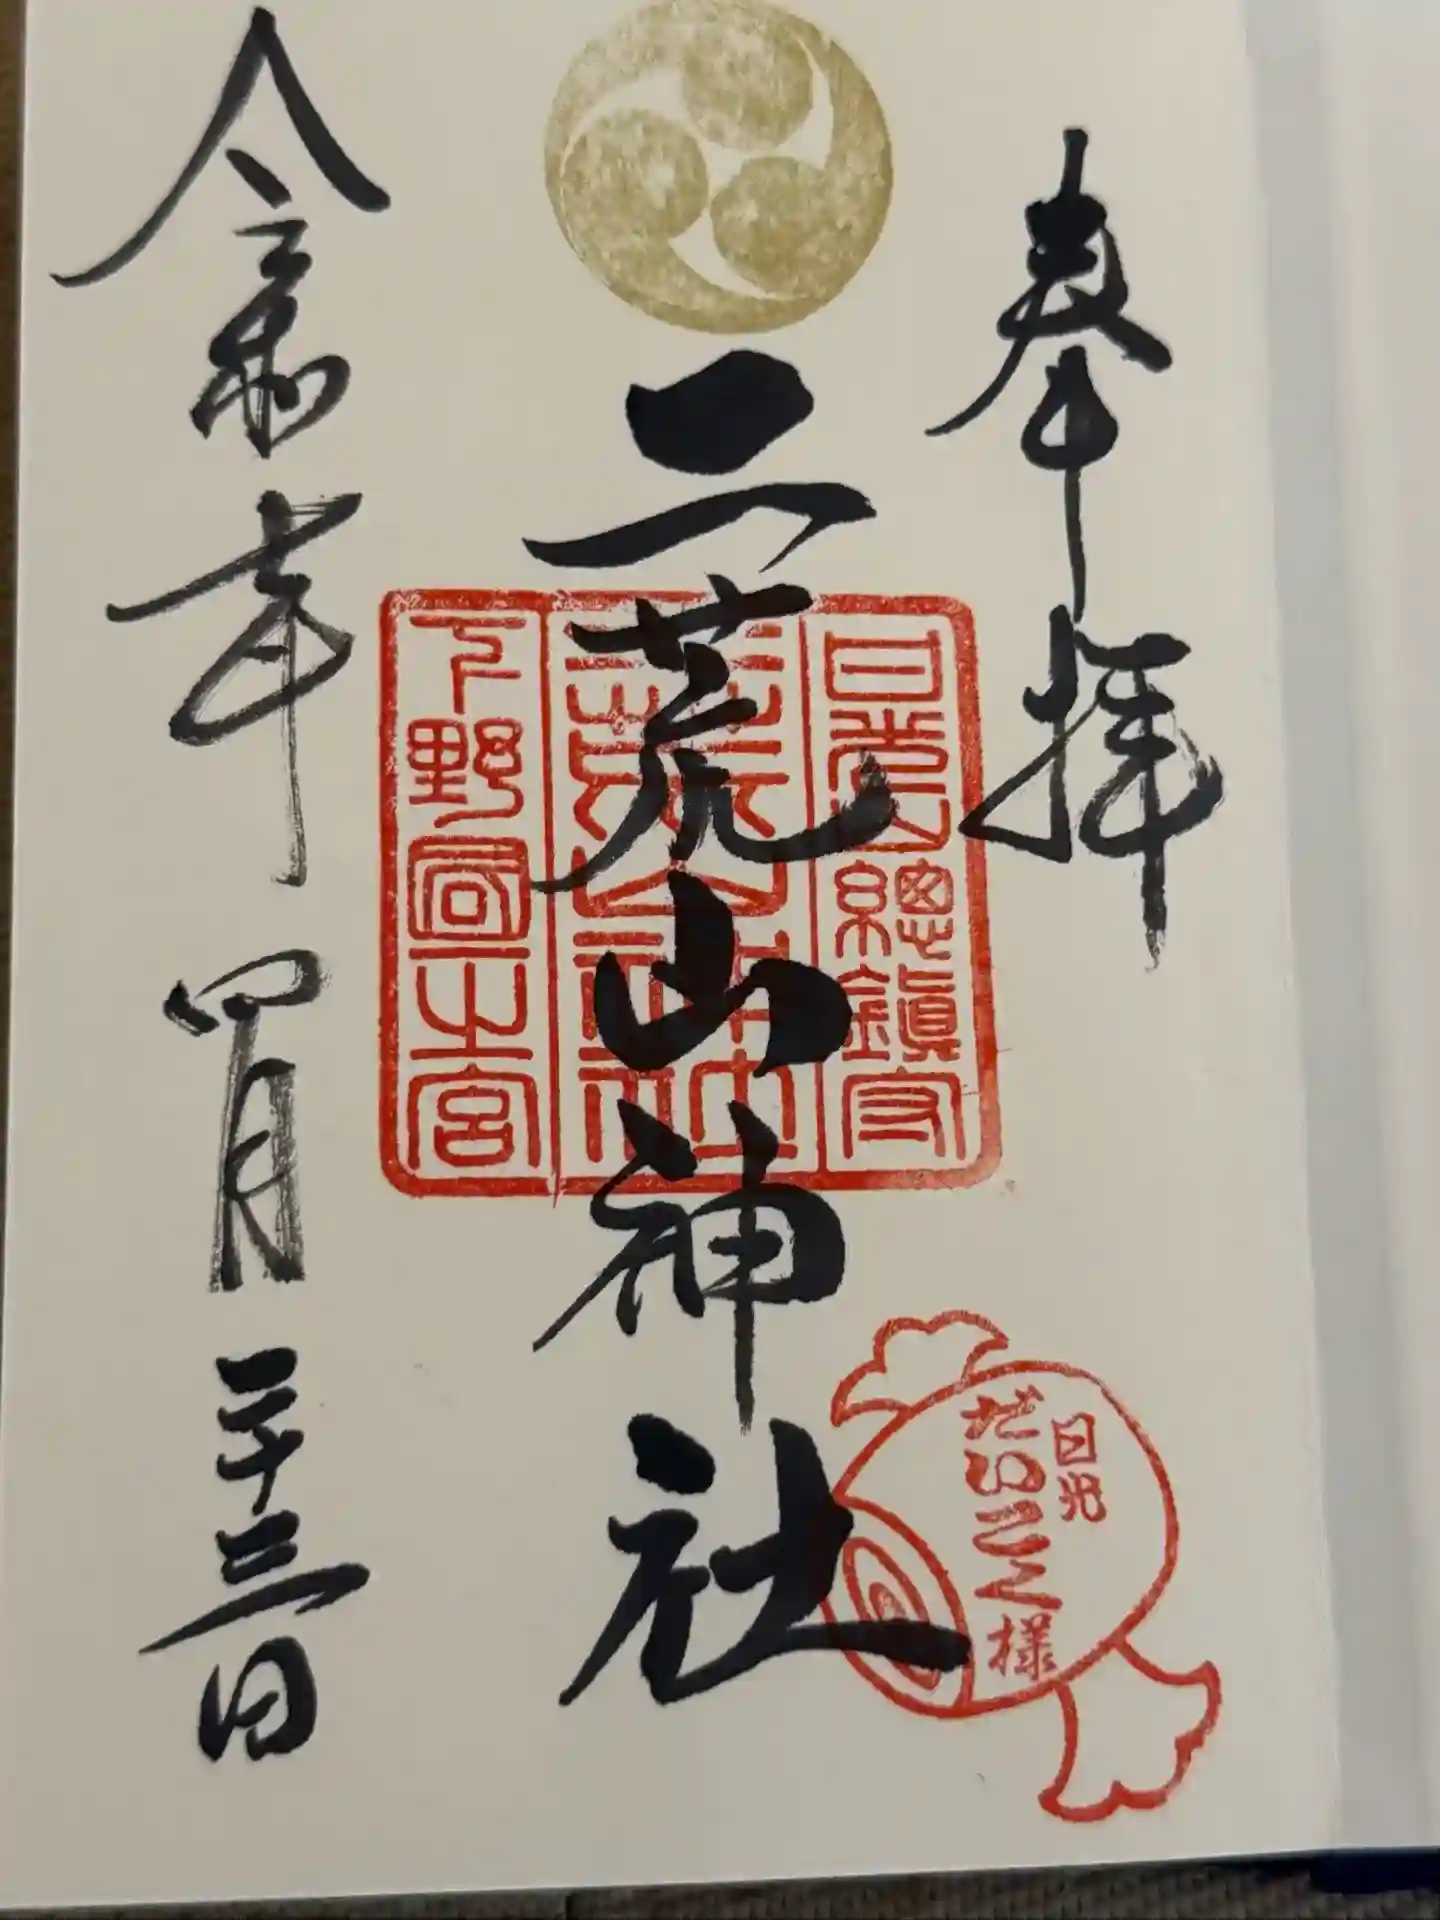 奉拝
二荒山神社
日光山總鎮守
二荒山神社
下野國一之宮
日光
だいこく様
令和七年四月二十三日